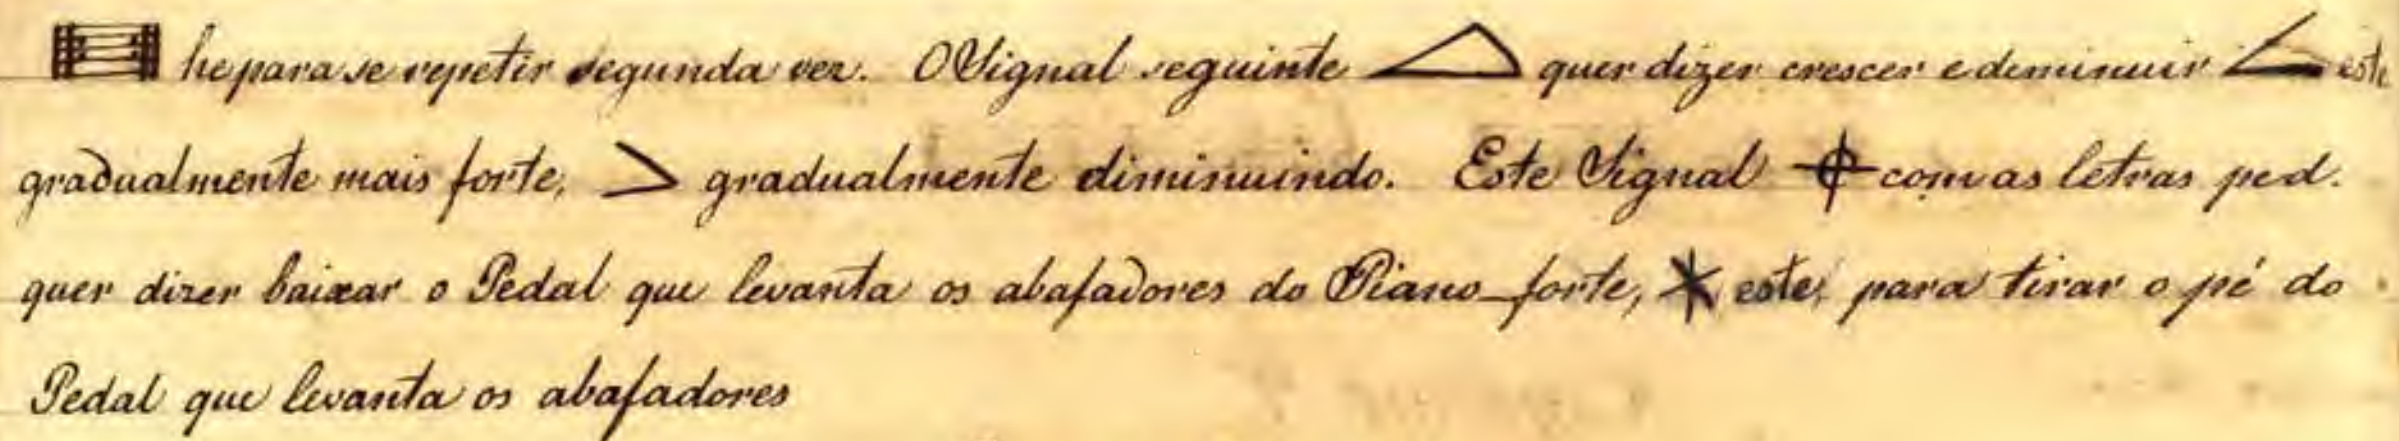 he para se repetir segunda vez. O Signal seguinte quer dizer crescer e deminuir este
gradualmente mais forte, > gradualmente diminuindo. Este Signal com as letras ped.
quer dizer baixar o Pedal que levanta os abafadores do Piano-forte, * este, para tirar o pé do
Pedal que levanta os abafadores